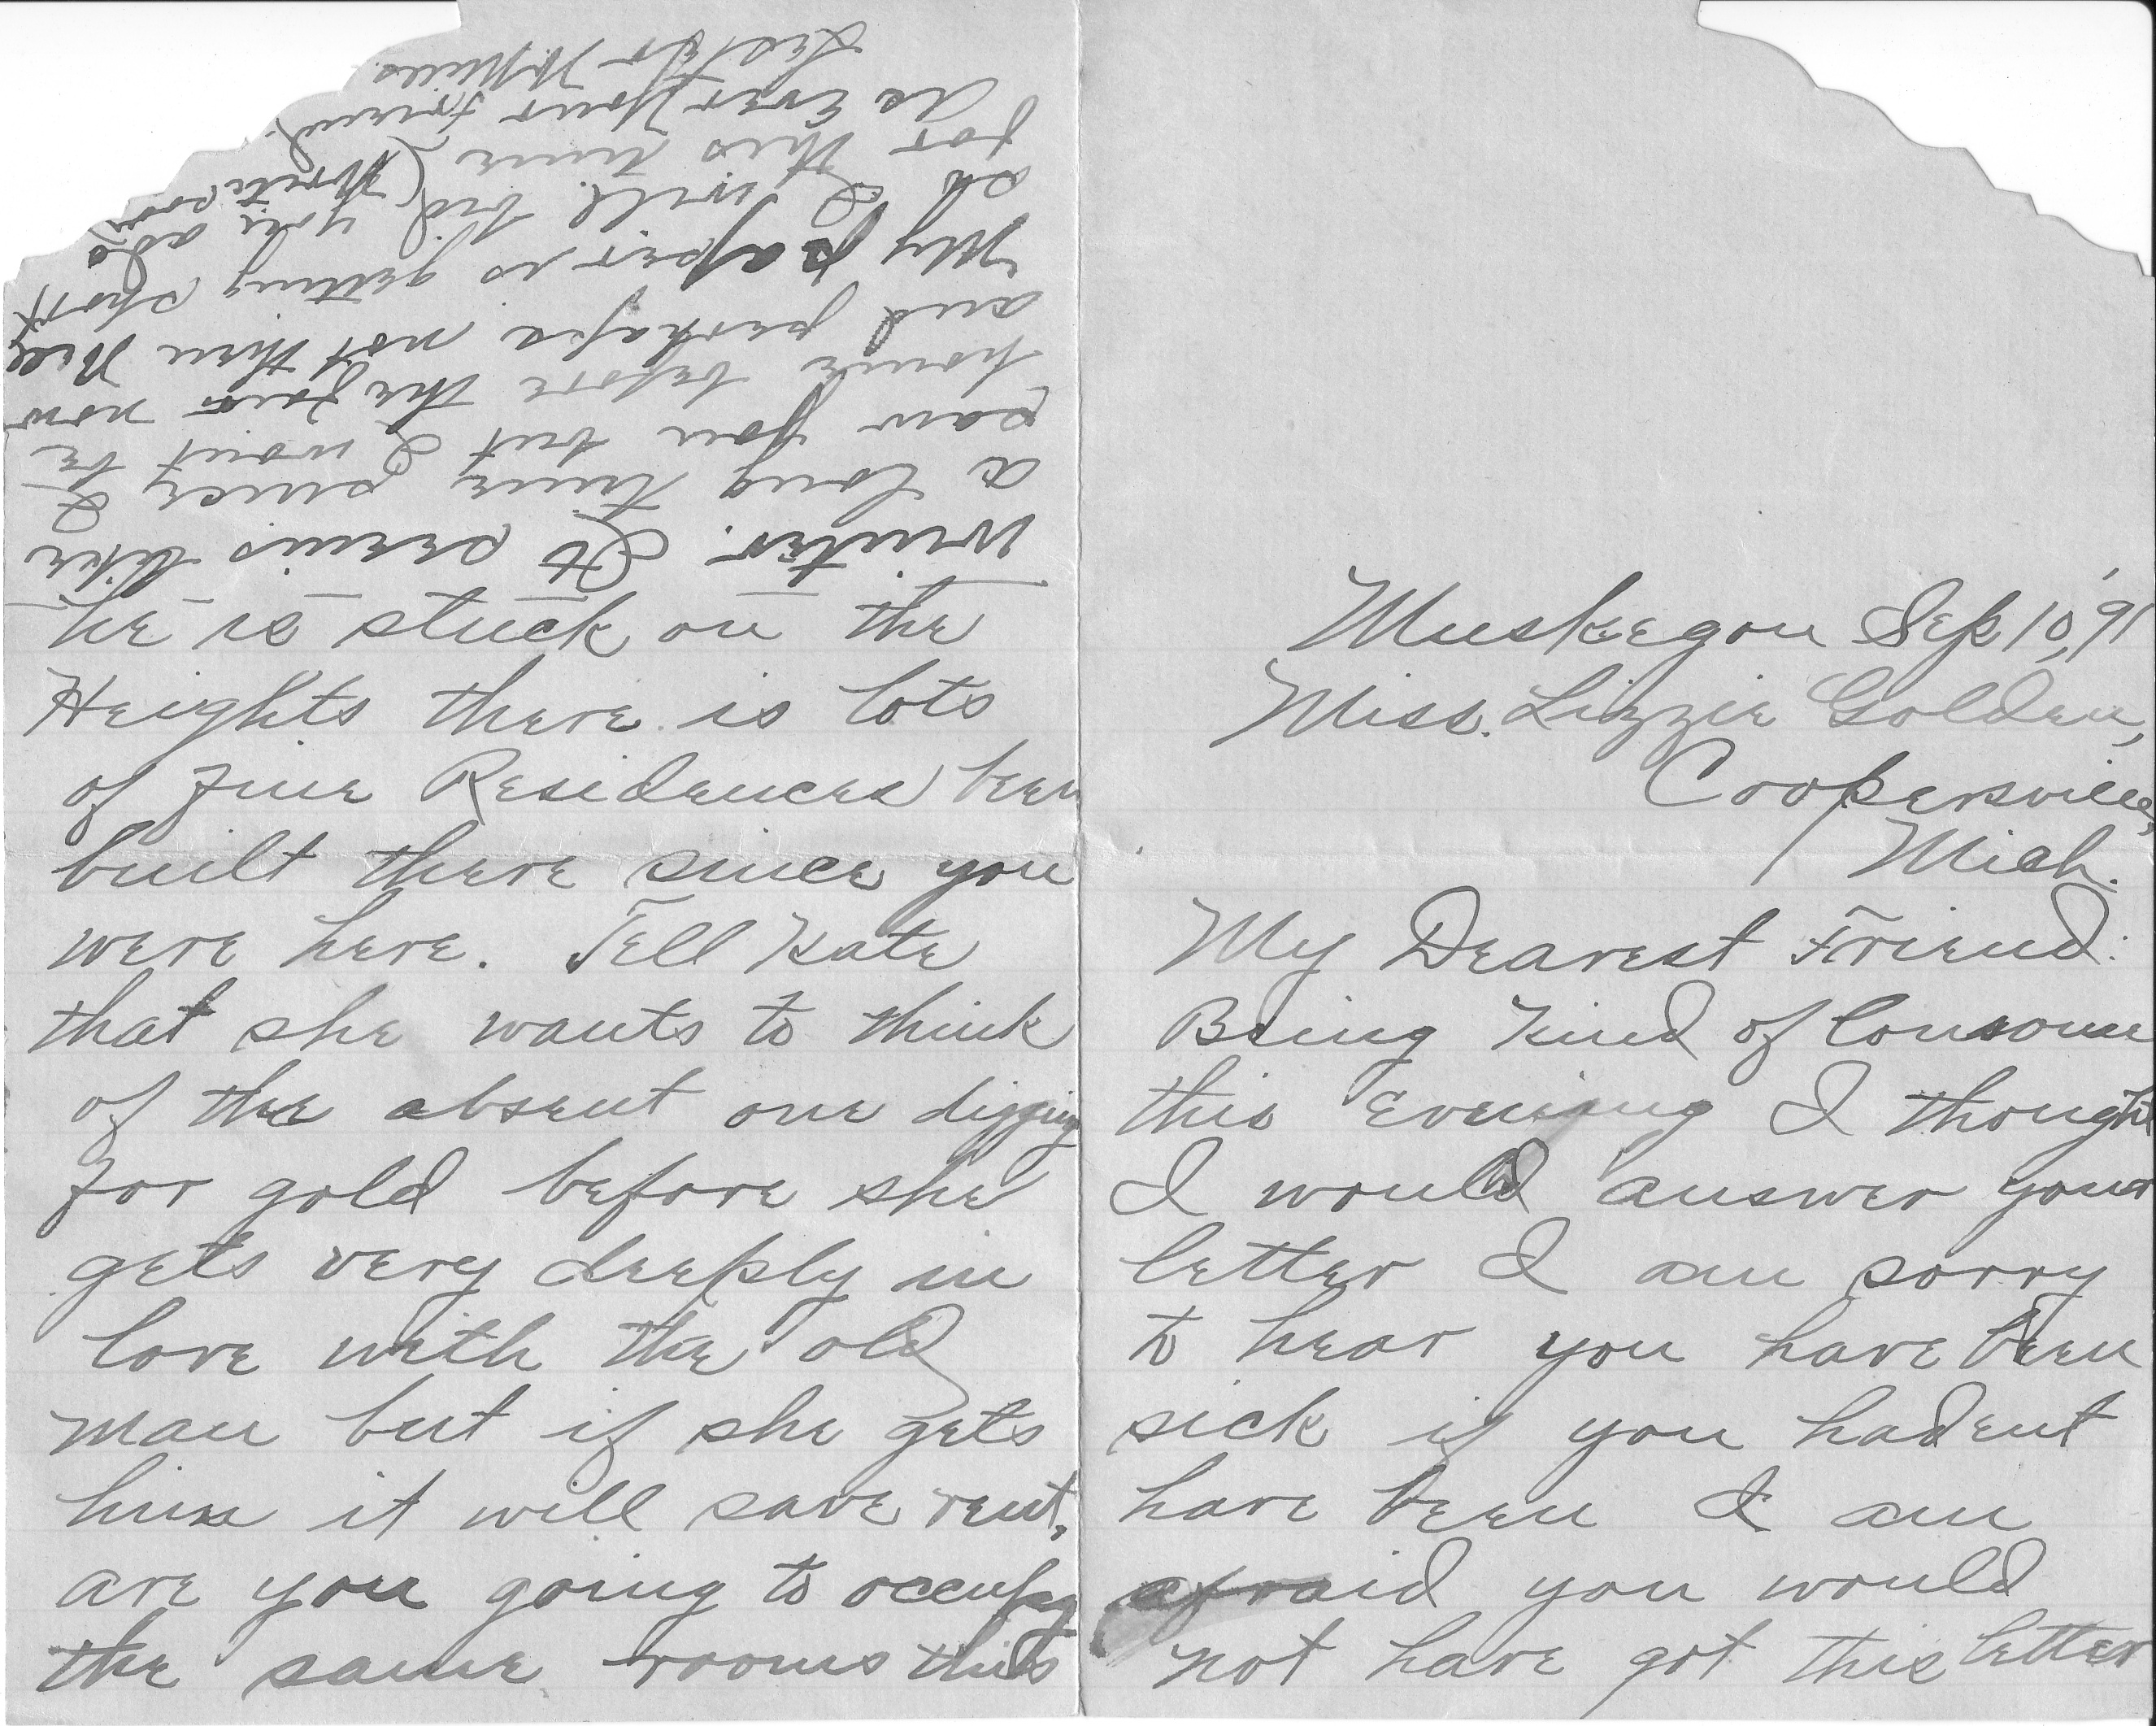 Muskegon Sep 10, '91
Miss. Lizzie Golden,
Coopersville,
Mich.
My Dearest Friend:
Being kind of lonsome
this Evening I thought
I would answer your
letter I am sorry
to hear you have been
sick if you hadent
have been I am
afraid you would
not have got this letter
he is stuck on the
Heights there is lots
of fine Residences been
built there since you
were here. Tell Kate
that she wants to think
of the absent one digging
for gold before she
gets very deeply in
love with the old
man but if she gets
him it will save rent.
are you going to occupy
the same rooms this
winter. It seems like
a long time since I
saw you but I wont be
home before the fair now
and perhaps not then Well
My paper is getting short
so I will bid you adie
for this time (Write soon
As Ever Your friend.
Lester